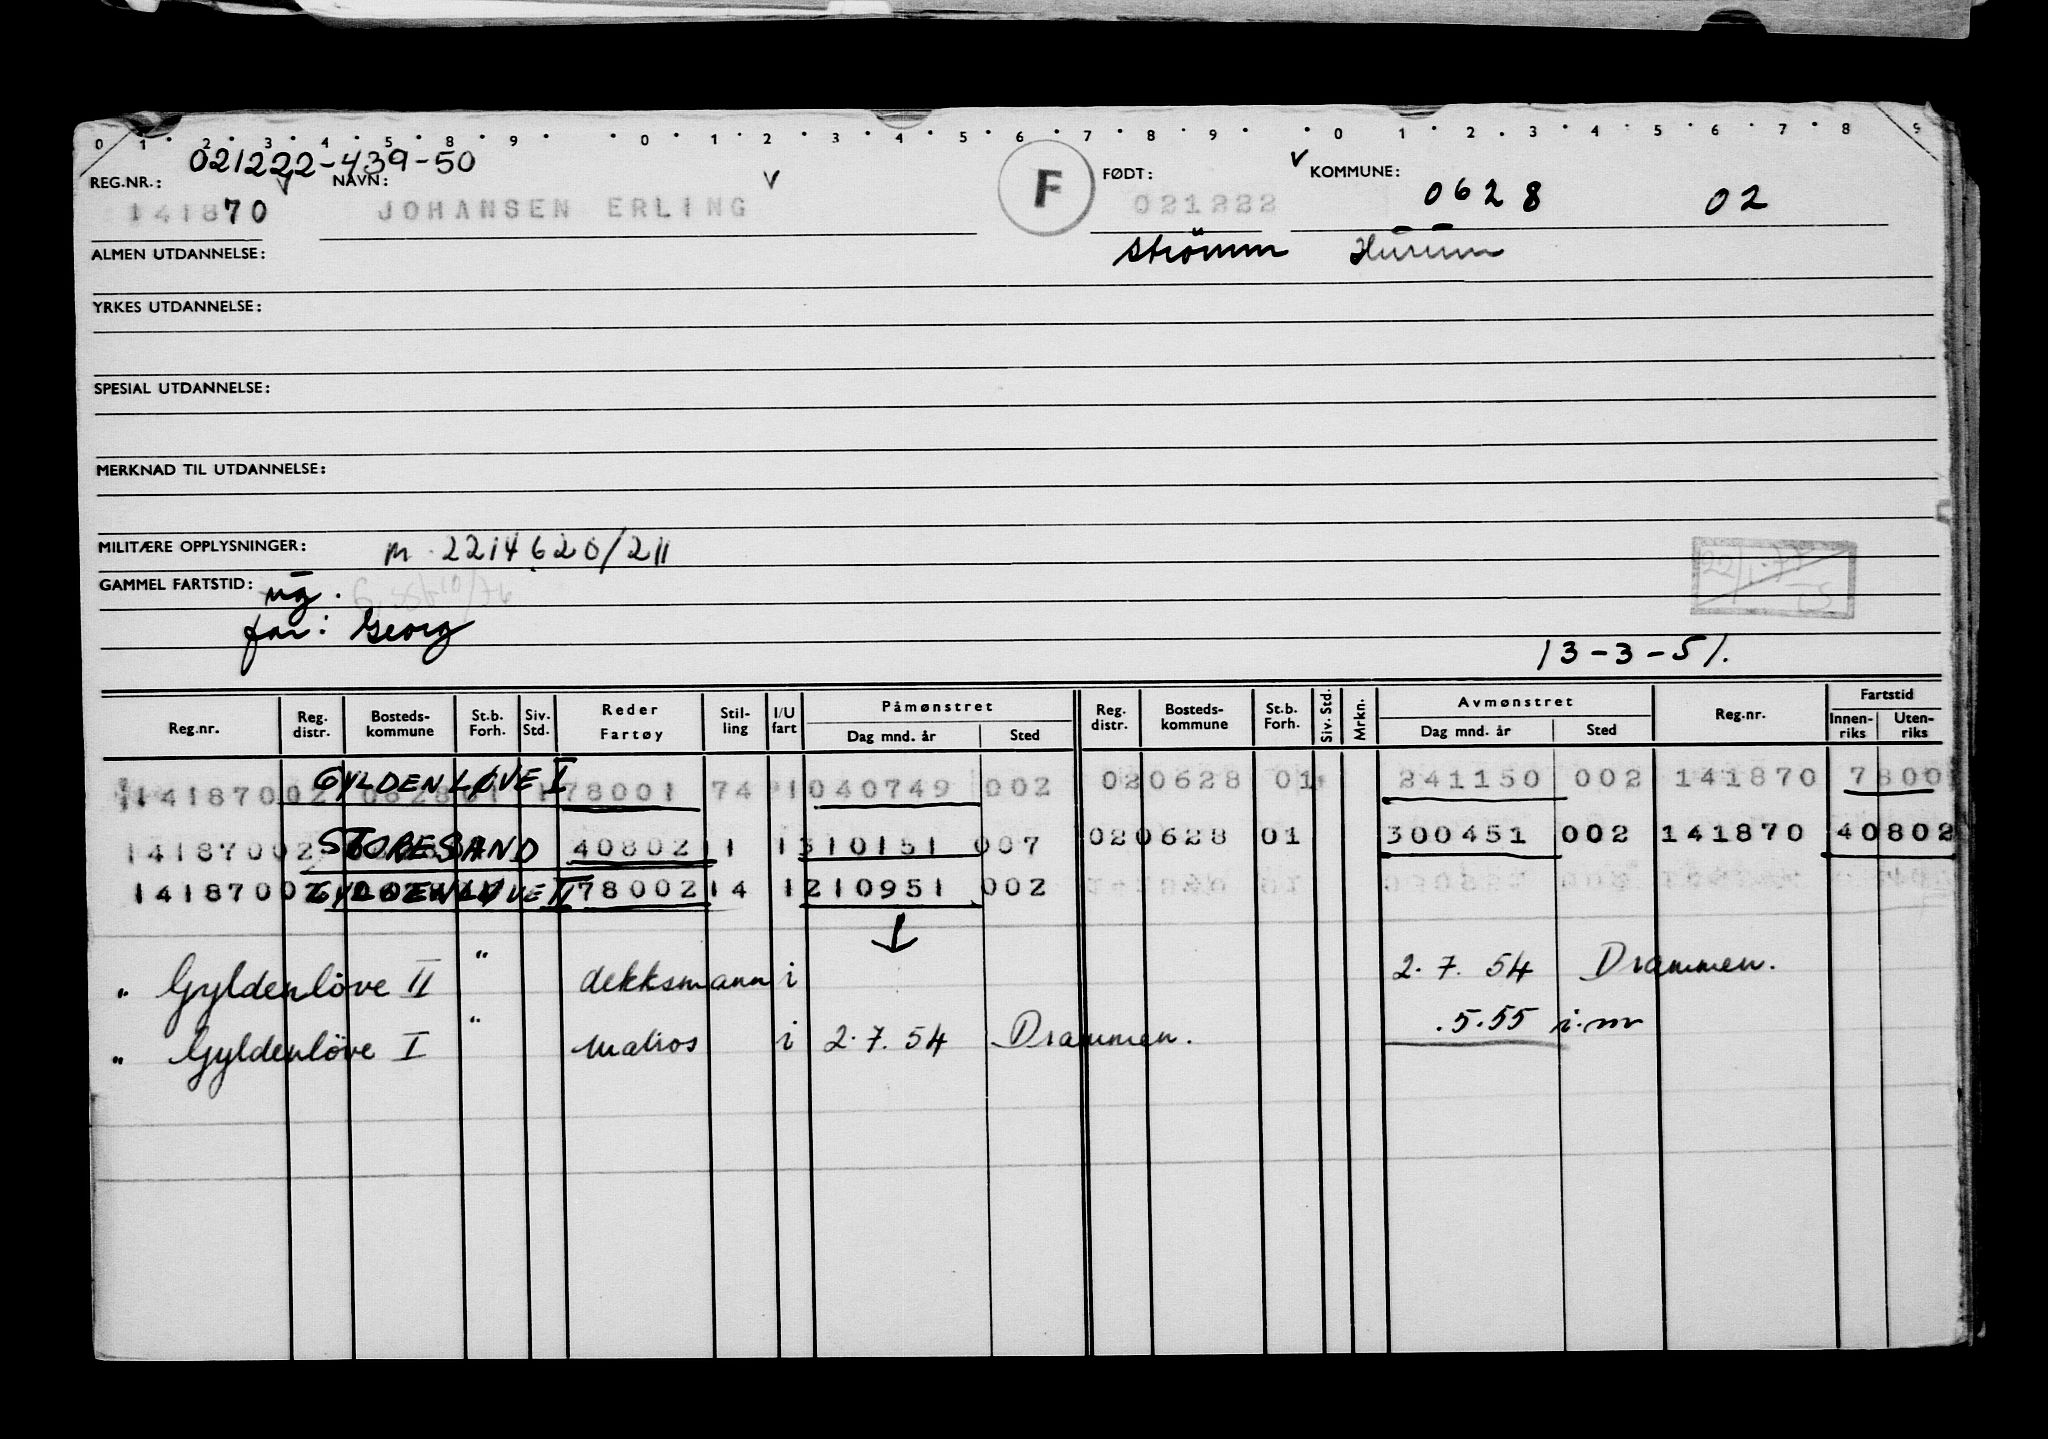 0 1 2 3 4 5 8 9 0 1 2 3 4 5 6 7 8 9 0 1 2 3 4 5 6 7 8 9
021222-439-50
REG.NR.: NAVN: F FØDT: KOMMUNE:
141870 JOHANSEN ERLING 021222 0628 02
Strömm Hurum
ALMEN UTDANNELSE:
YRKES UTDANNELSE:
SPESIAL UTDANNELSE:
MERKNAD TIL UTDANNELSE:
MILITÆRE OPPLYSNINGER: m. 2214620/211
GAMMEL FARTSTID: ug.
far: Georg
13-3-51.
Reg.nr. Reg. distr. Bosteds-kommune St.b. Forh. Siv. Std. Reder Fartøy Stil-ling I/U fart Påmønstret Dag mnd. år Sted Reg. distr. Bosteds-kommune St.b. Forh. Siv. Std. Mrkn. Avmønstret Dag mnd. år Sted Reg.nr. Fartstid Innen-riks Uten-riks
GYLDENLØVE I
141870 02 062801 1 78001 74 1 040749 002 02 0628 01 241150 002 141870 7800
STORESAND
141870 02 40802 11 1 310151 007 02 0628 01 300451 002 141870 40802
GYLDENLØVE II
141870 02 78002 14 1 210951 002
" Gyldenlöve II " dekksmann i 2.7.54 Drammen.
" Gyldenlöve I " Matros i 2.7.54 Drammen. .5.55 i.m